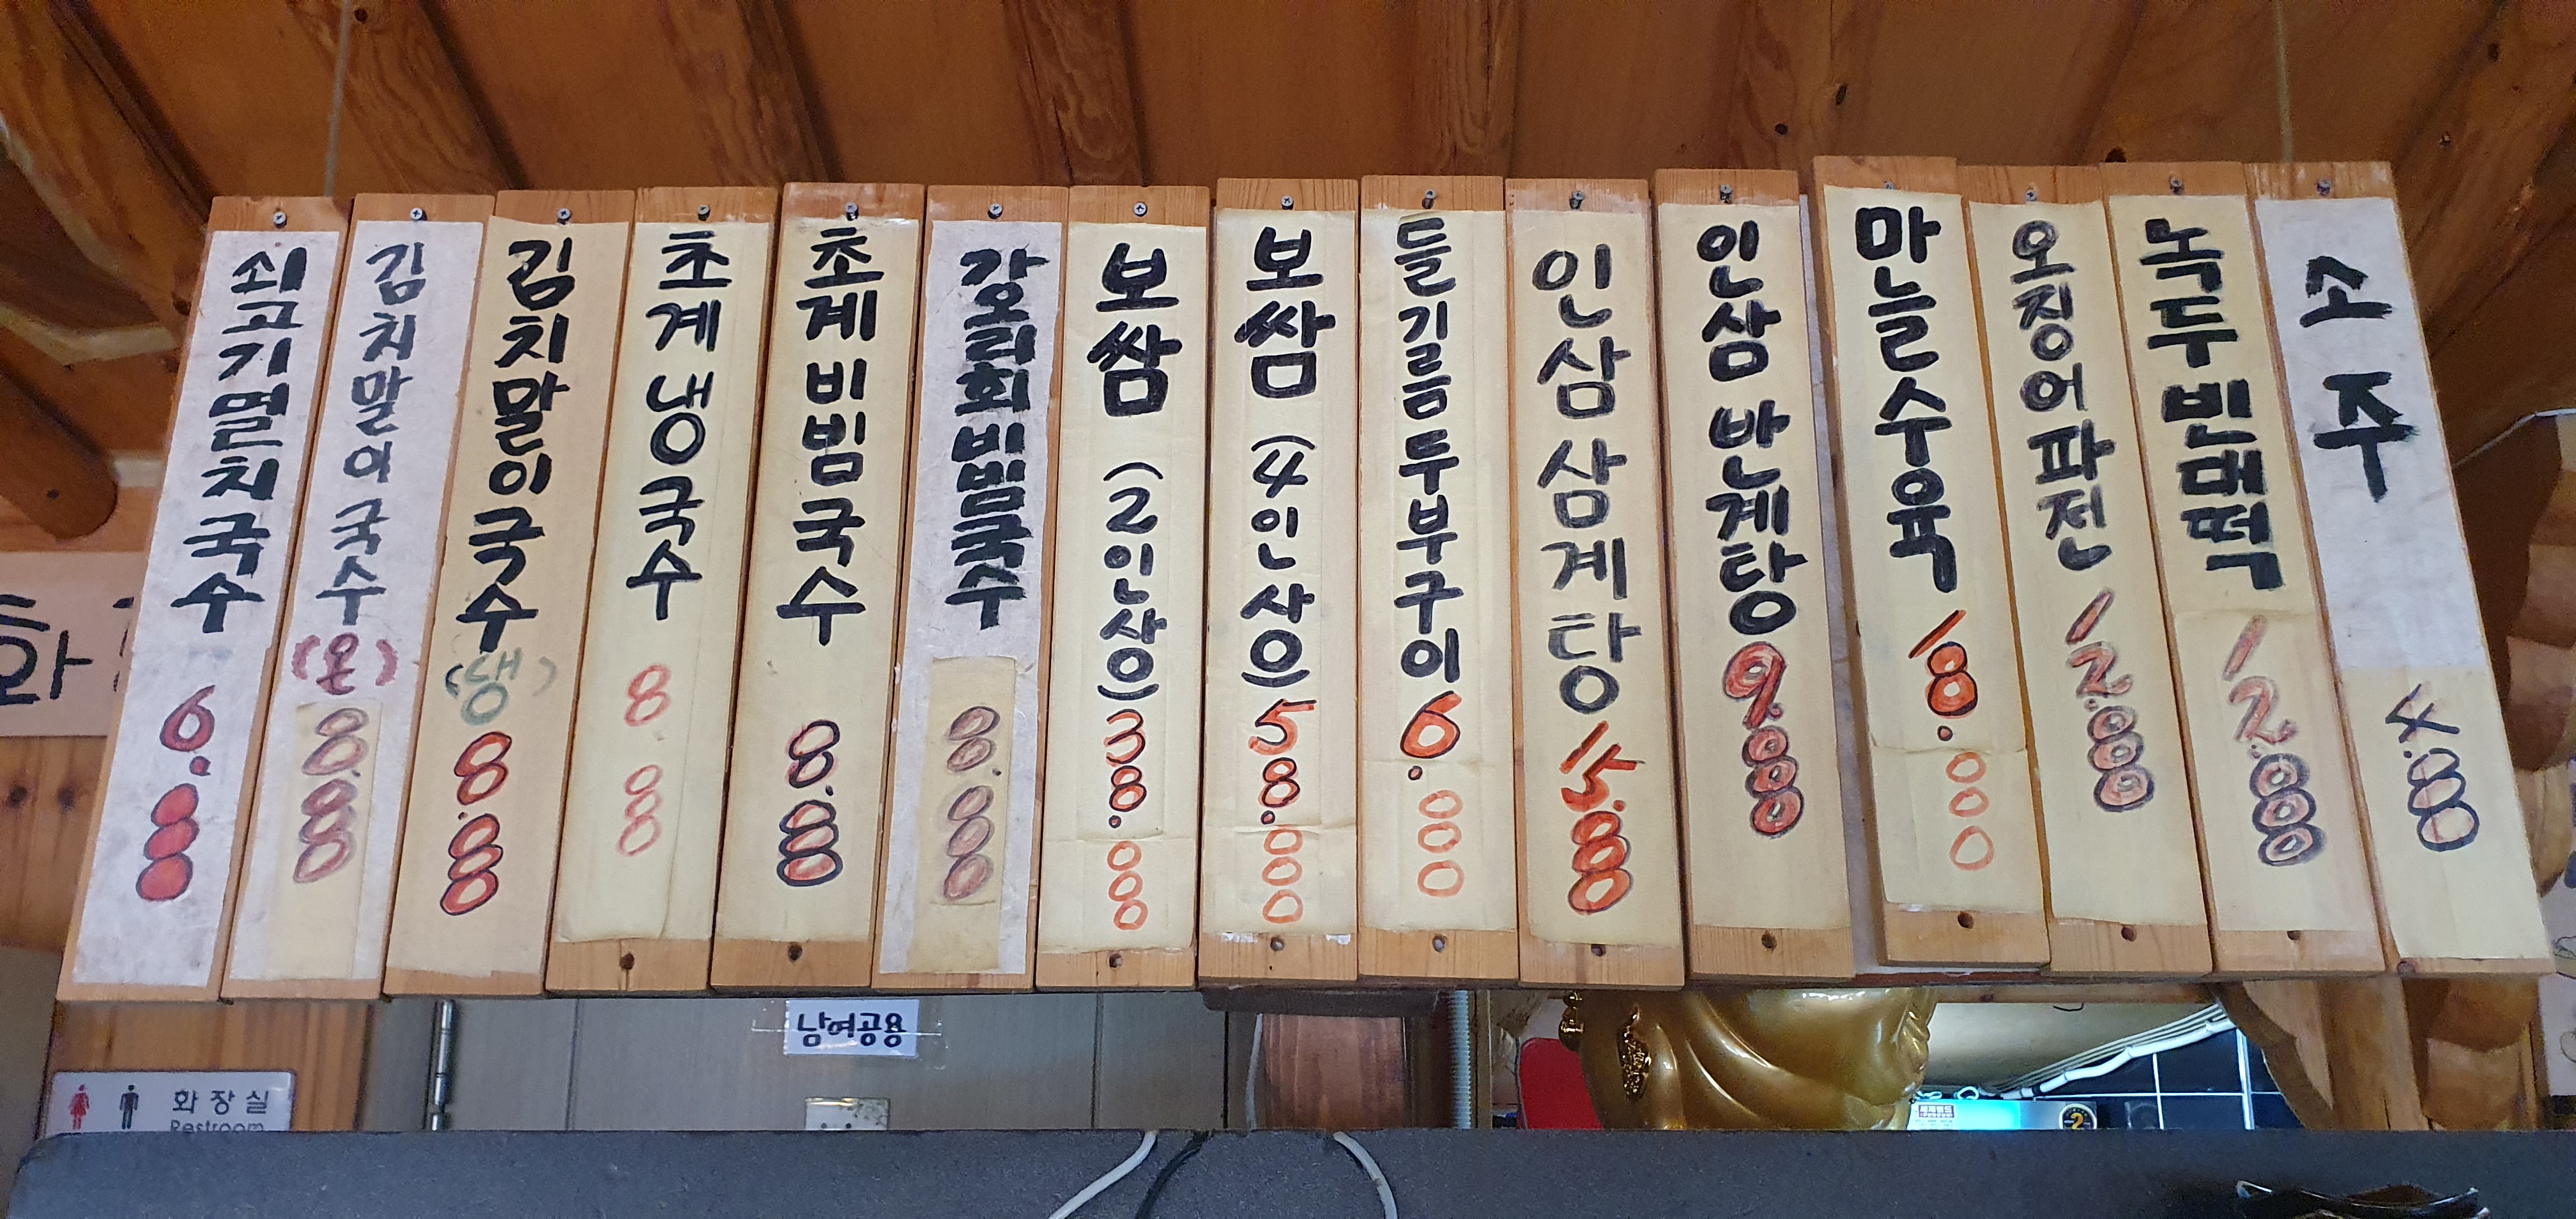 쇠고기멸치국수 6.000
김치말이국수(온) 8.000
김치말이국수(냉) 8.000
초계냉국수 8.000
초계비빔국수 8.000
강오리회비빔국수 8.000
보쌈(2인상) 38.000
보쌈(4인상) 58.000
들기름두부구이 6.000
인삼삼계탕 15.000
인삼반계탕 9.000
마늘수육 18.000
오징어파전 12.000
녹두빈대떡 12.000
소주 4.000
남여공용
화장실
Restroom
2